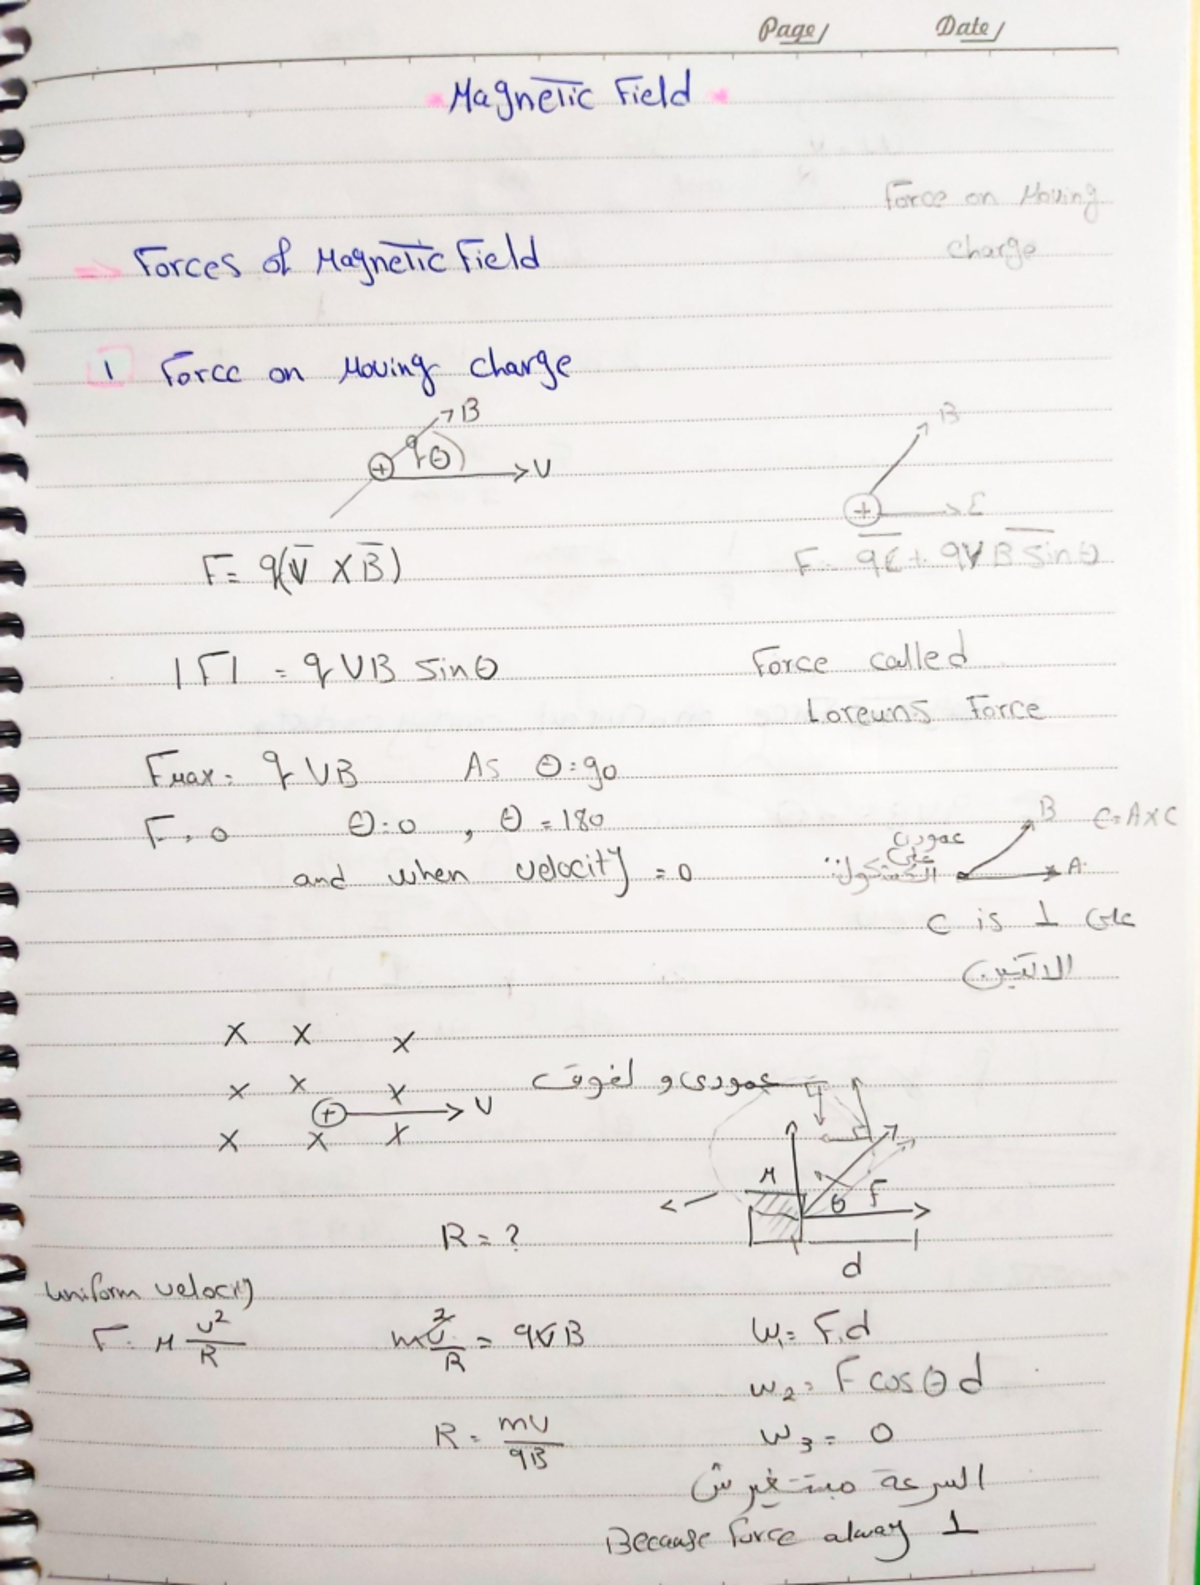 Page/ Date/
Magnetic Field
Force on Moving
charge
⇒ Forces of Magnetic Field
1 Force on Moving charge
B
q θ
+ V
B
+ E
F = q(V̅ X B̅)
F = qE + qVB sinθ
|F| = qVB sinθ
Force called
Loreuns Force
Fmax = qVB As θ = 90
F = 0 θ = 0 , θ = 180
and when velocity = 0
B C = A x C
عمودى
على
A
C is ⊥ على
الاتنين
X X X
X X X
+ V
X X X
عمودى و لفوق
M
θ F
d
R = ?
uniform velocity
F = M v²/R
mv²/R = qVB
R = mV/qB
W₁ = F.d
W₂ = F cosθ d
W₃ = 0
السرعة مبتتغيرش
Because Force alway ⊥